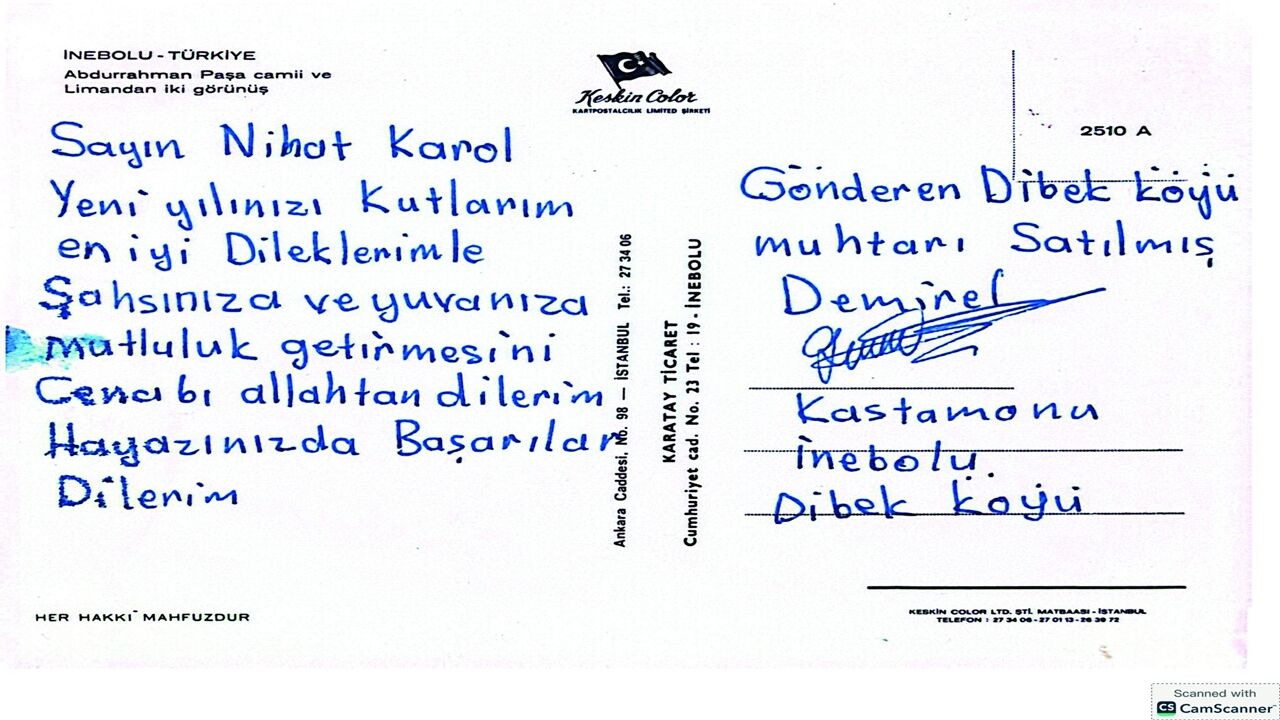 İNEBOLU - TÜRKİYE
Abdurrahman Paşa camii ve
Limandan iki görünüş
Keskin Color
KARTPOSTALCILIK LIMITED ŞİRKETİ
2510 A
Sayın Nihat Karol
Yeni yılınızı Kutlarım
en iyi Dileklerimle
Şahsınıza ve yuvanıza
mutluluk getirmesini
Cenabı allahtan dilerim
Hayazınızda Başarılar
Dilerim
Ankara Caddesi, No. 98 — İSTANBUL Tel.: 27 34 06
KARATAY TİCARET
Cumhuriyet cad. No. 23 Tel : 19 - İNEBOLU
Gönderen Dibek köyü
muhtarı Satılmış
Demirel
Kastamonu
İnebolu.
Dibek köyü
HER HAKKI MAHFUZDUR
KESKİN COLOR LTD. ŞTİ. MATBAASI - İSTANBUL
TELEFON : 27 34 06 - 27 01 13 - 26 39 72
Scanned with
CS CamScanner